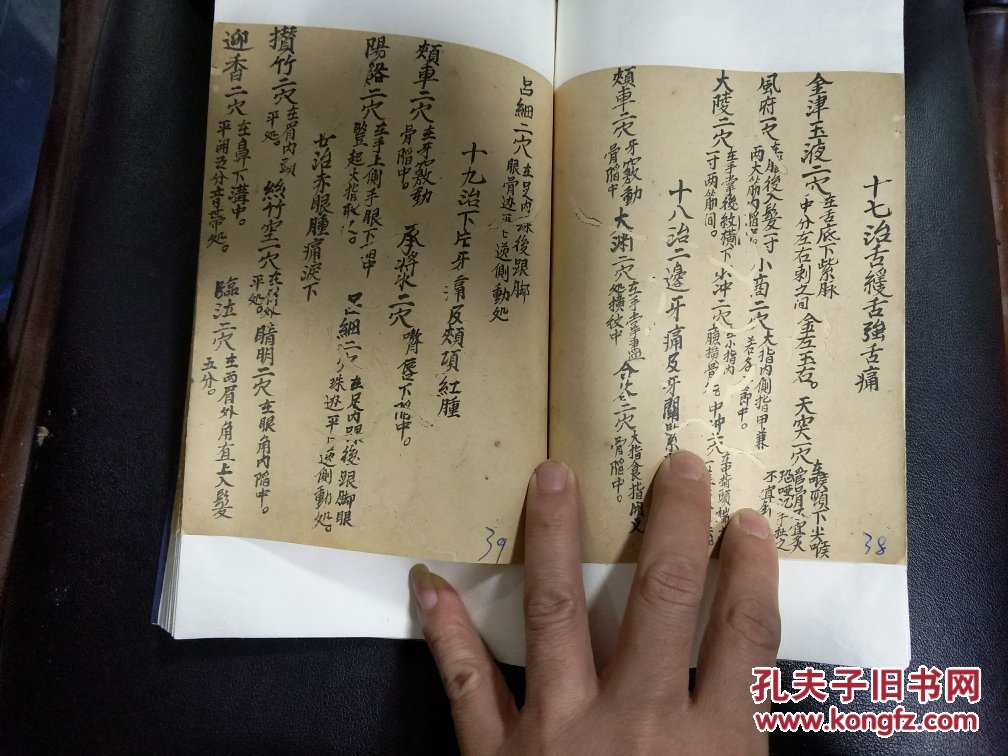 十七治舌緩舌強舌痛
金津玉液二穴 在舌底下紫脉中分左右刺之间 金左玉右。 天突一穴 在喉頸下尖喉
不宜針
風府一穴 後入髮一寸两大筋内 小商二穴 大指内側指甲兼
大陵二穴 在手掌後紋横下一寸两筋间。 少冲二穴 小指内 中冲穴
十八治二邊牙痛及牙關緊
頰車二穴 牙竅動骨陷中 大渊二穴 处横纹中 合谷二穴 大指食指開叉骨陷中。
38
呂細二穴 在足内珠後跟脚眼骨边平上边側動処
十九治下片牙痛及頰項紅腫
頰車二穴 在牙竅動骨陷中。 承將穴二穴 嘴唇下中。
陽谿二穴 在手上側手眼下中竪起大指取
呂細二穴 在足内後跟脚眼珠边平上边側動処。
廿治赤眼腫痛淚下
攅竹二穴 在眉内頭平処。 絲竹空二穴 在眉外平処。 睛明二穴 在眼角内陷中。
迎香二穴 在鼻下溝中。平開五分 臨泣二穴 在两眉外角直上入髮五分。
39
孔夫子旧书网
www.kongfz.com